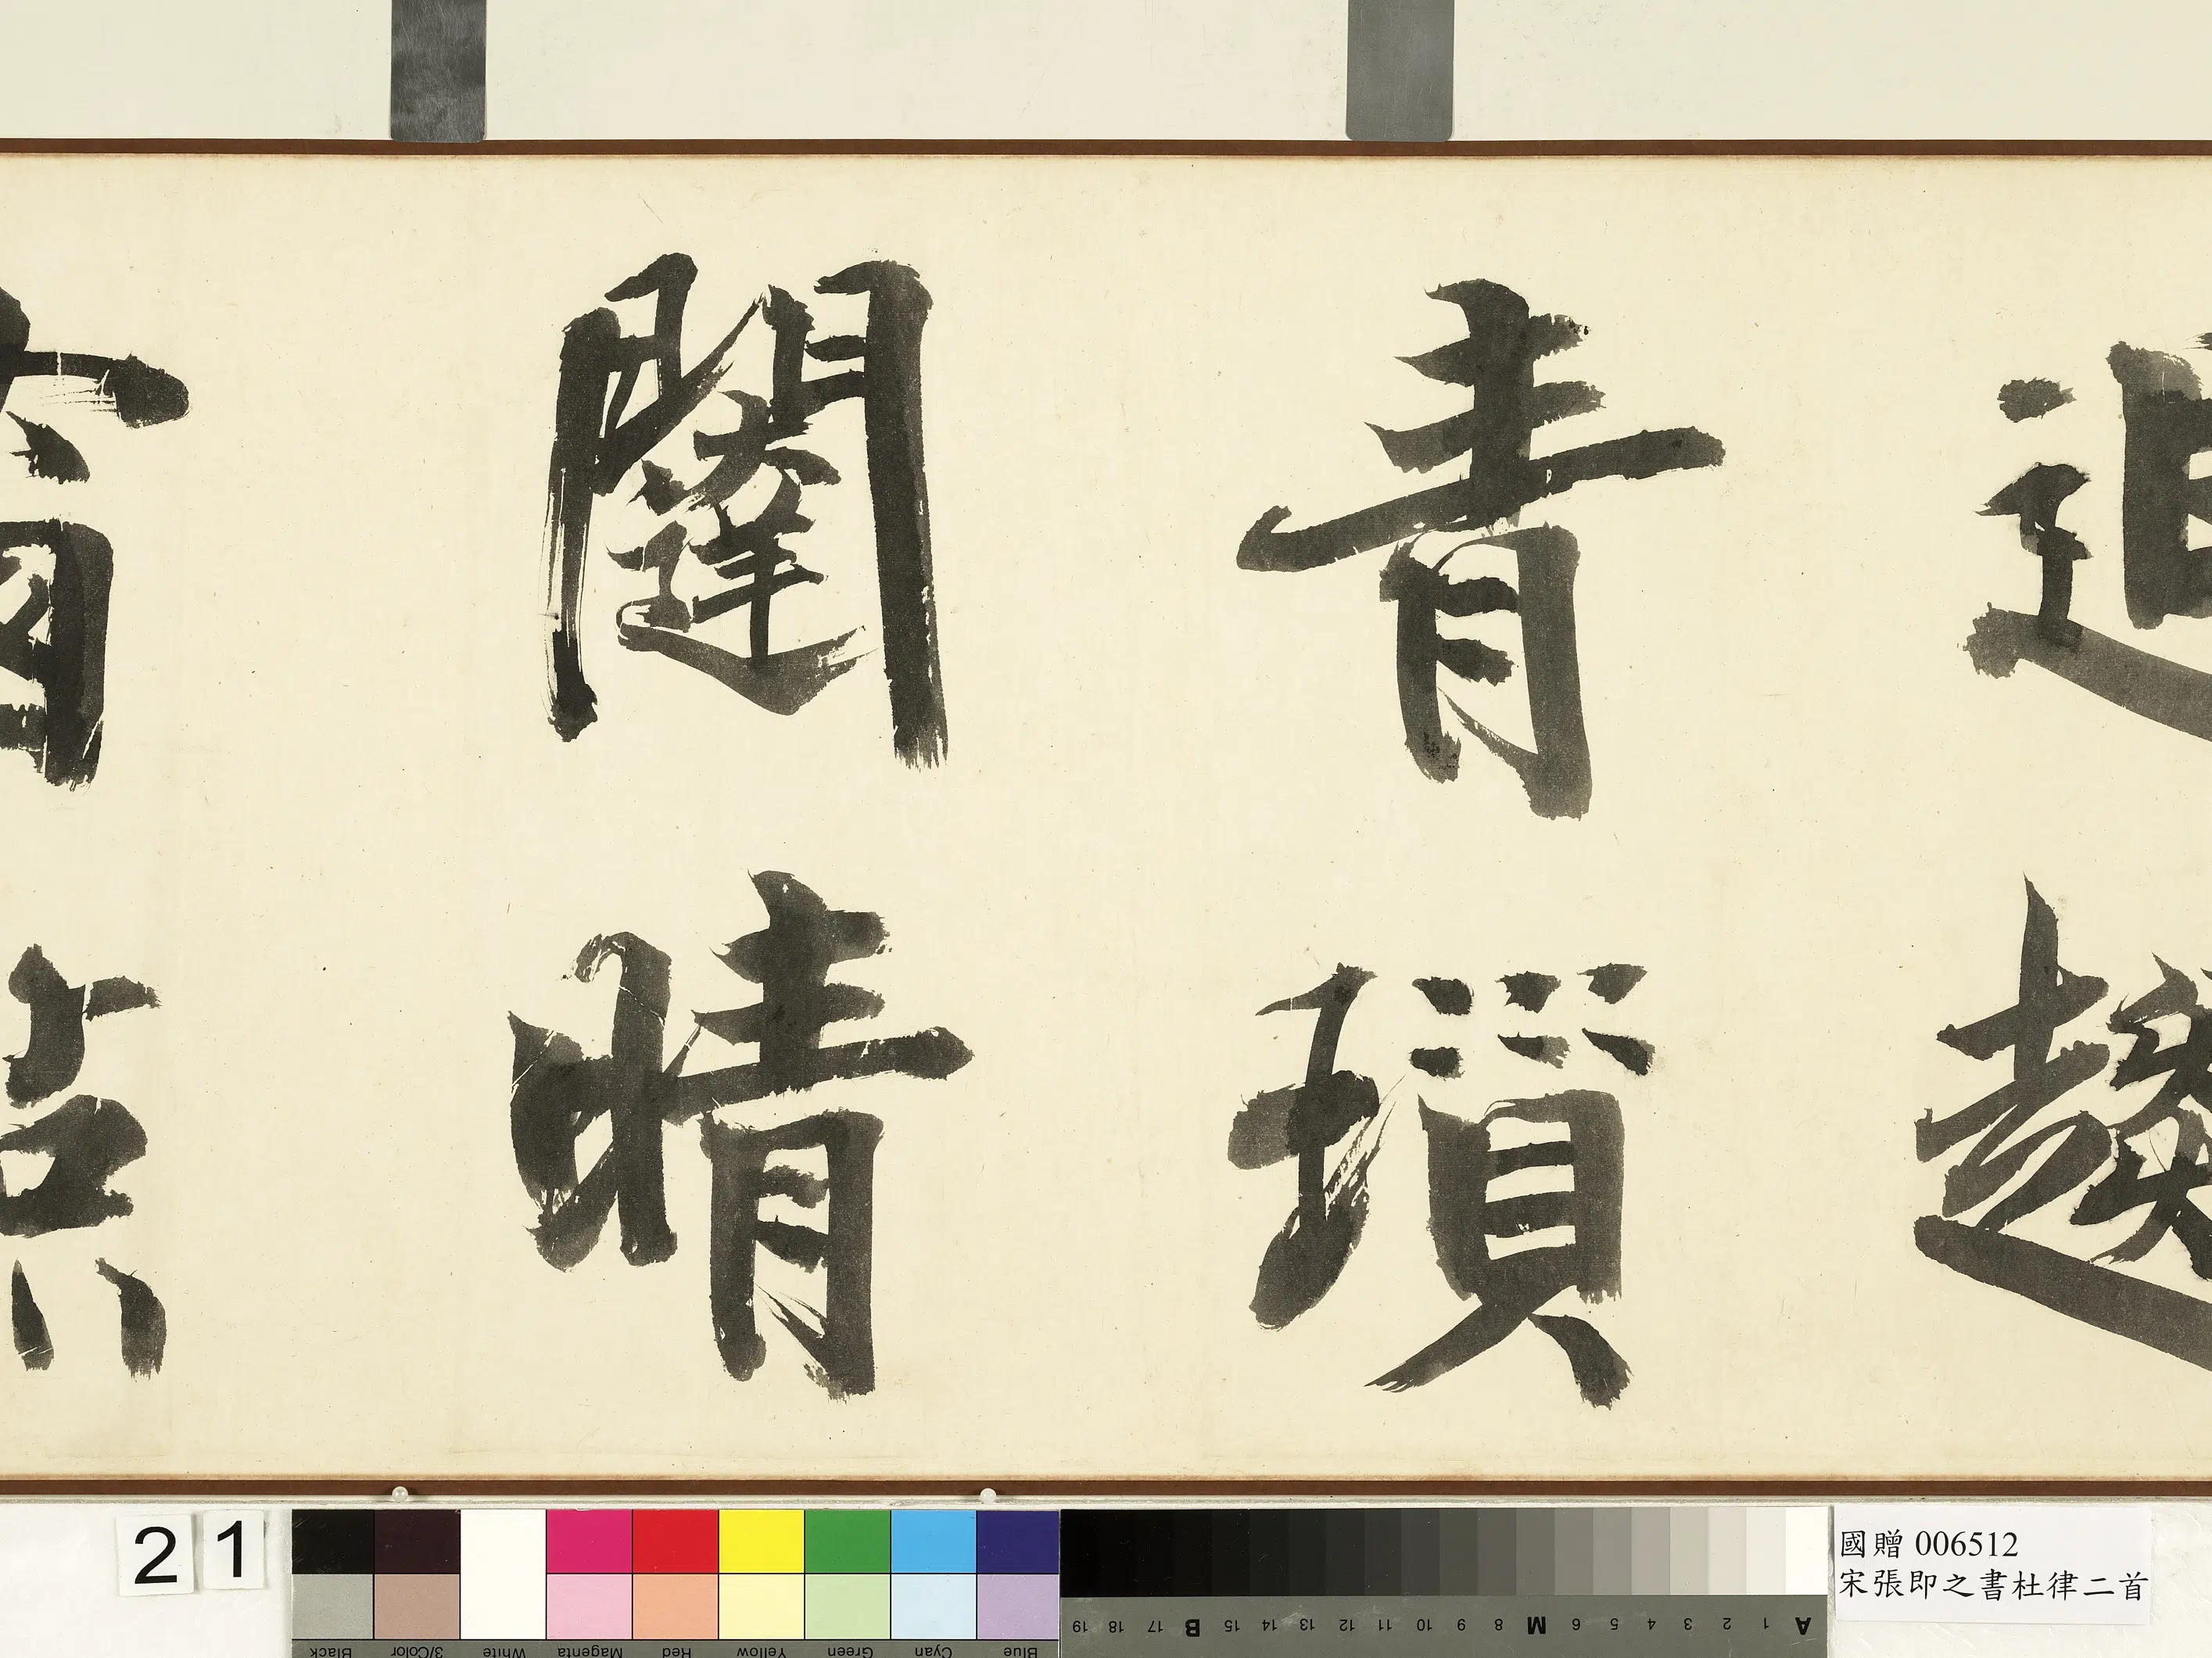 追趨
青瑣
闥晴
窗點
21
國贈 006512
宋張即之書杜律二首
Black 3/Color White Magenta Red Yellow Green Cyan Blue
A 1 2 3 4 5 6 M 8 9 10 11 12 13 14 15 B 17 18 19